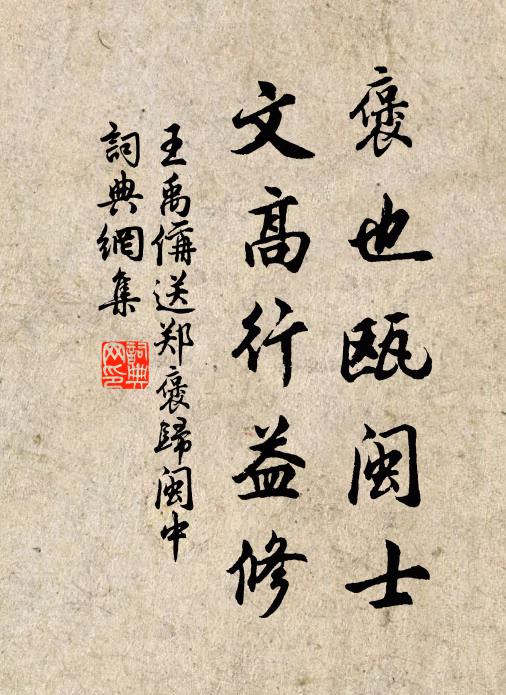 褒也瓯闽士
文高行益修
王禹偁送郑褒歸闽中
詞典網集
詞典网印